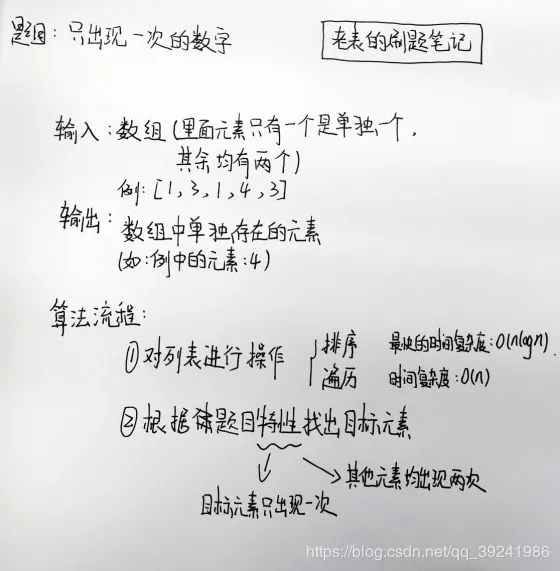 题目：只出现一次的数字
老表的刷题笔记
输入：数组（里面元素只有一个是单独一个，
其余均有两个）
例：[1,3,1,4,3]
输出：数组中单独存在的元素
（如：例中的元素：4）
算法流程：
①对列表进行操作
排序 最快的时间复杂度：O(nlogn)
遍历 时间复杂度：O(n)
②根据题目特性找出目标元素
其他元素均出现两次
目标元素只出现一次
https://blog.csdn.net/qq_39241986